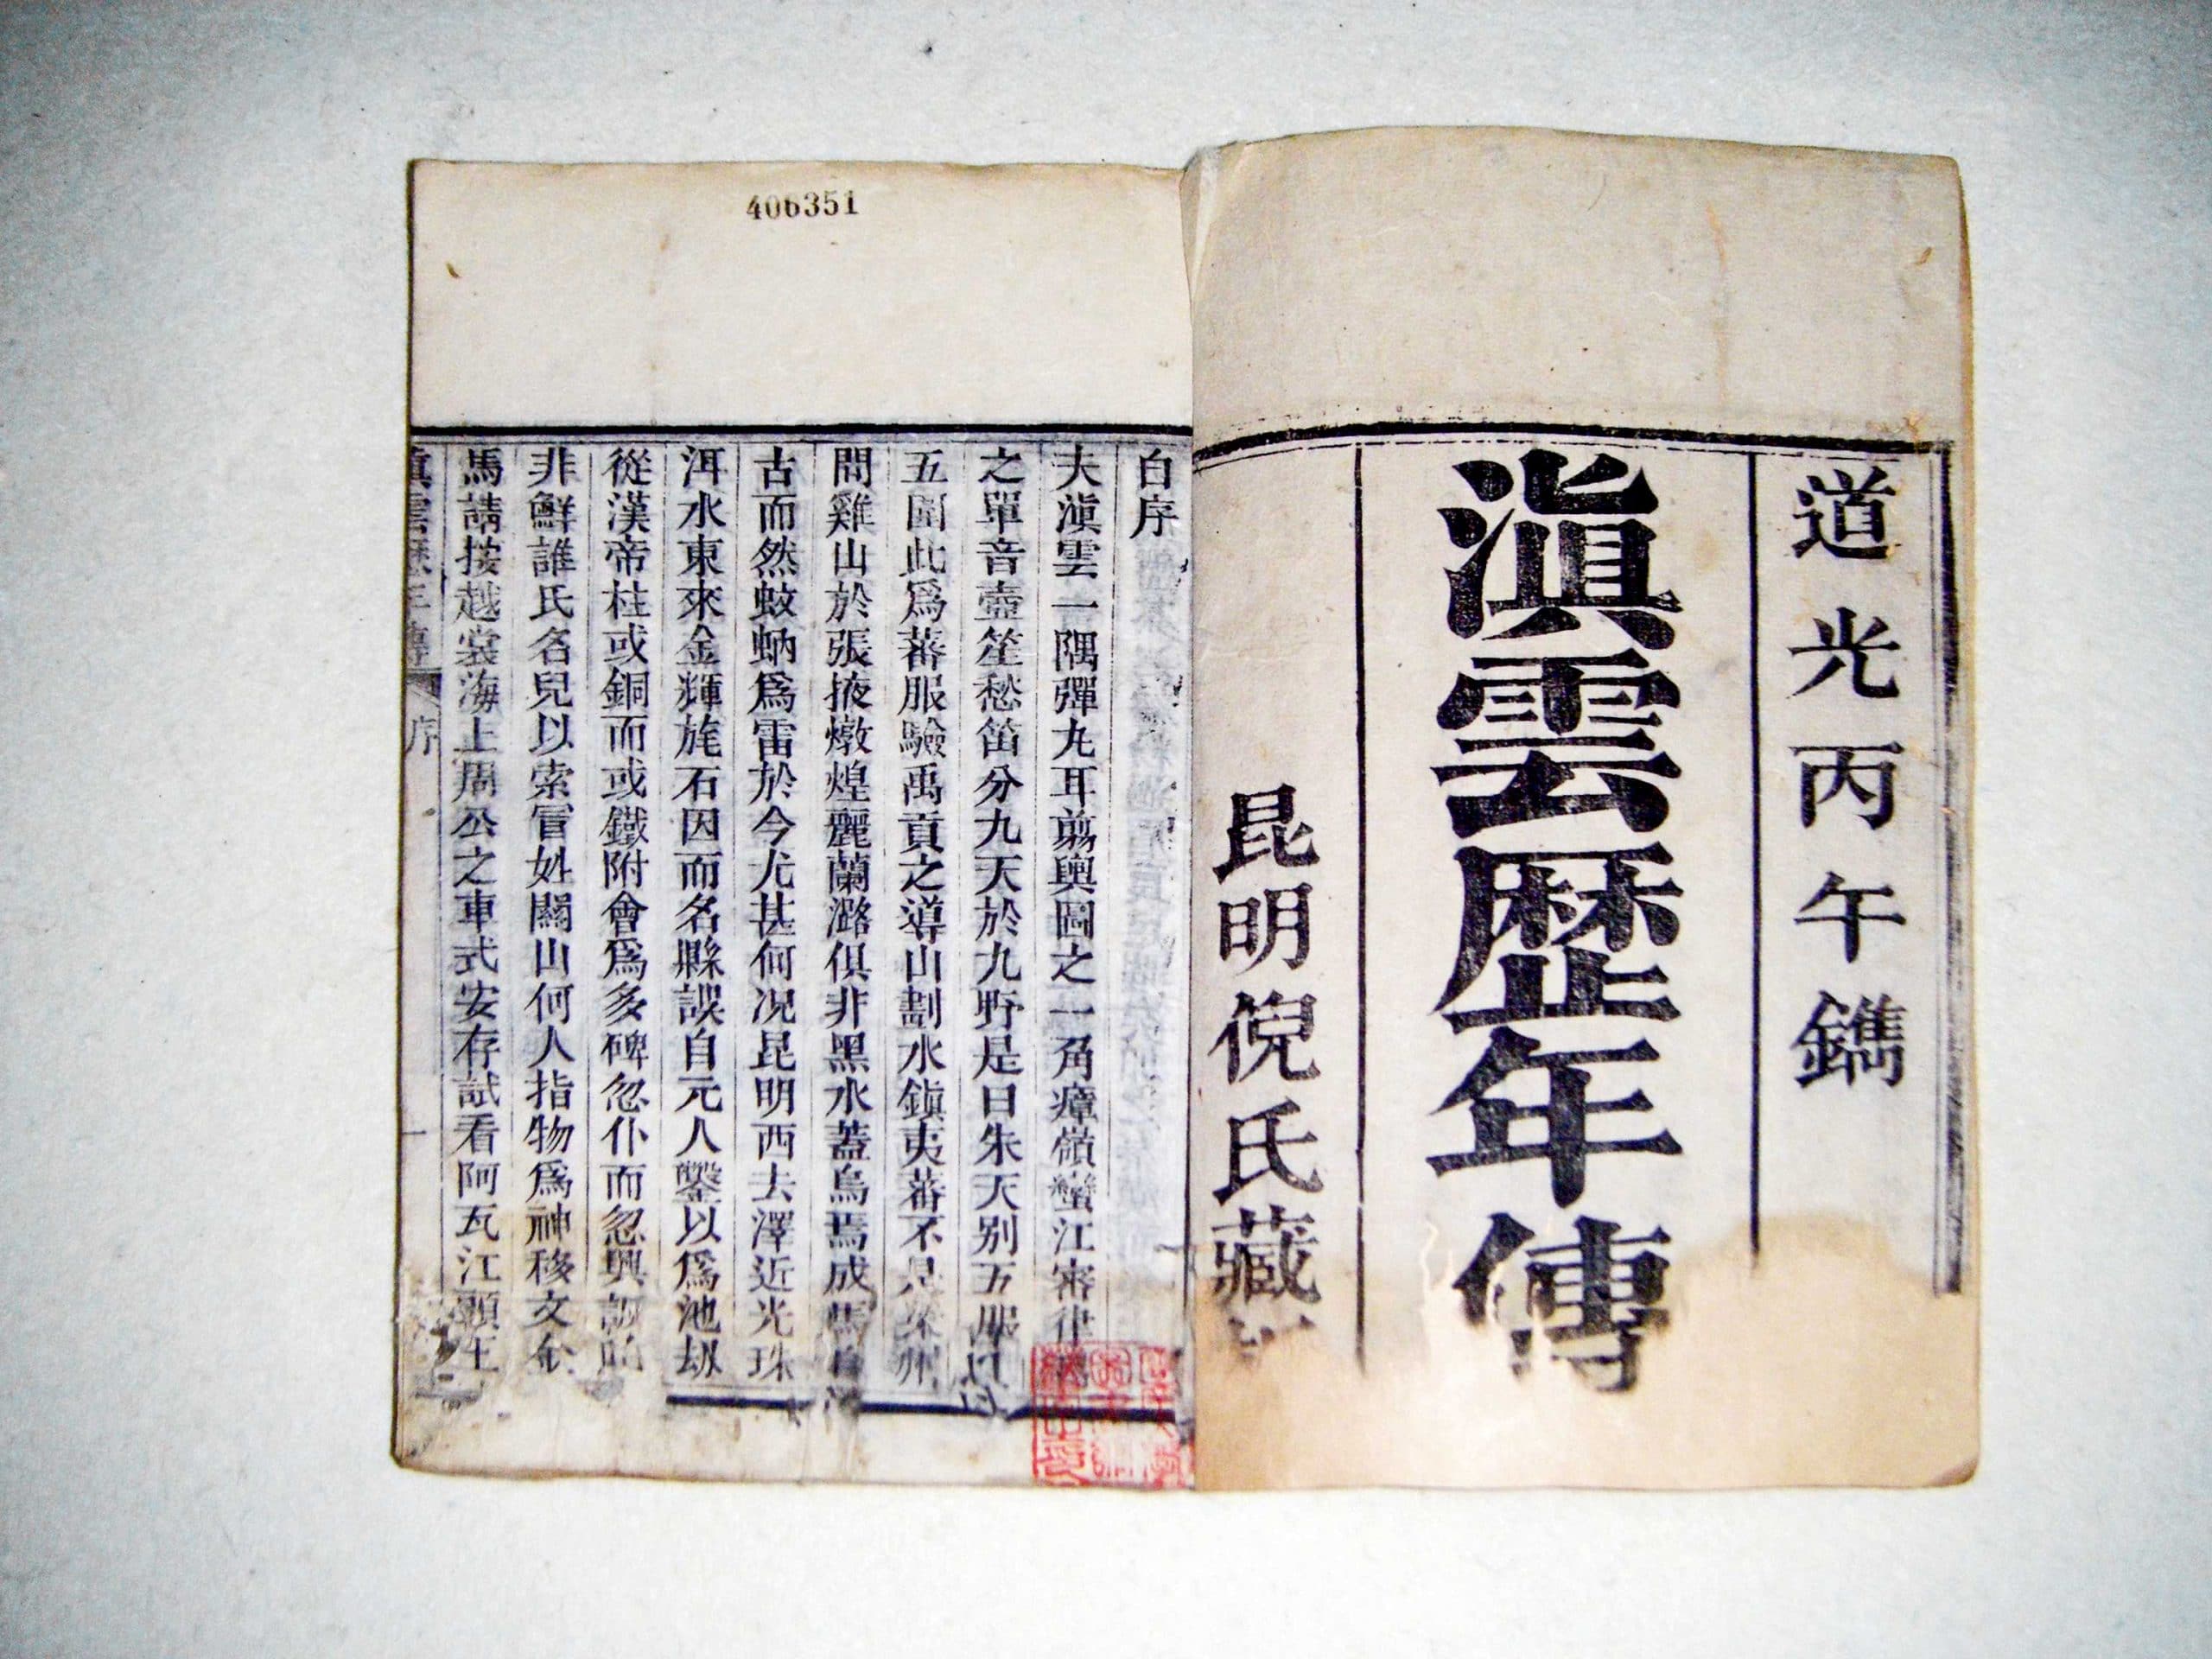 道光丙午鐫
滇雲歷年傳
昆明倪氏藏
406351
自序
夫滇雲一隅彈丸耳剪輿圖之一角瘴嶺蠻江審律
之單音壺笙愁笛分九天於九野是曰朱天别五服
五圍此爲蕃服驗禹貢之導山劃水鎮夷蕃不是梁州
問雞山於張掖燉煌麗蘭潞俱非黑水蓋烏焉成馬自
古而然蚊蚋爲雷於今尤甚何况昆明西去澤近光珠
洱水東來金輝旄石因而名縣誤自元人鑿以爲池刼
從漢帝柱或銅而或鐵附會爲多碑忽仆而忽興
非鮮誰氏名兒以索冒姓關山何人指物爲神移文
馬請按越裳海上周公之車式安存試看阿瓦江頭王
滇雲歷年傳 序 一